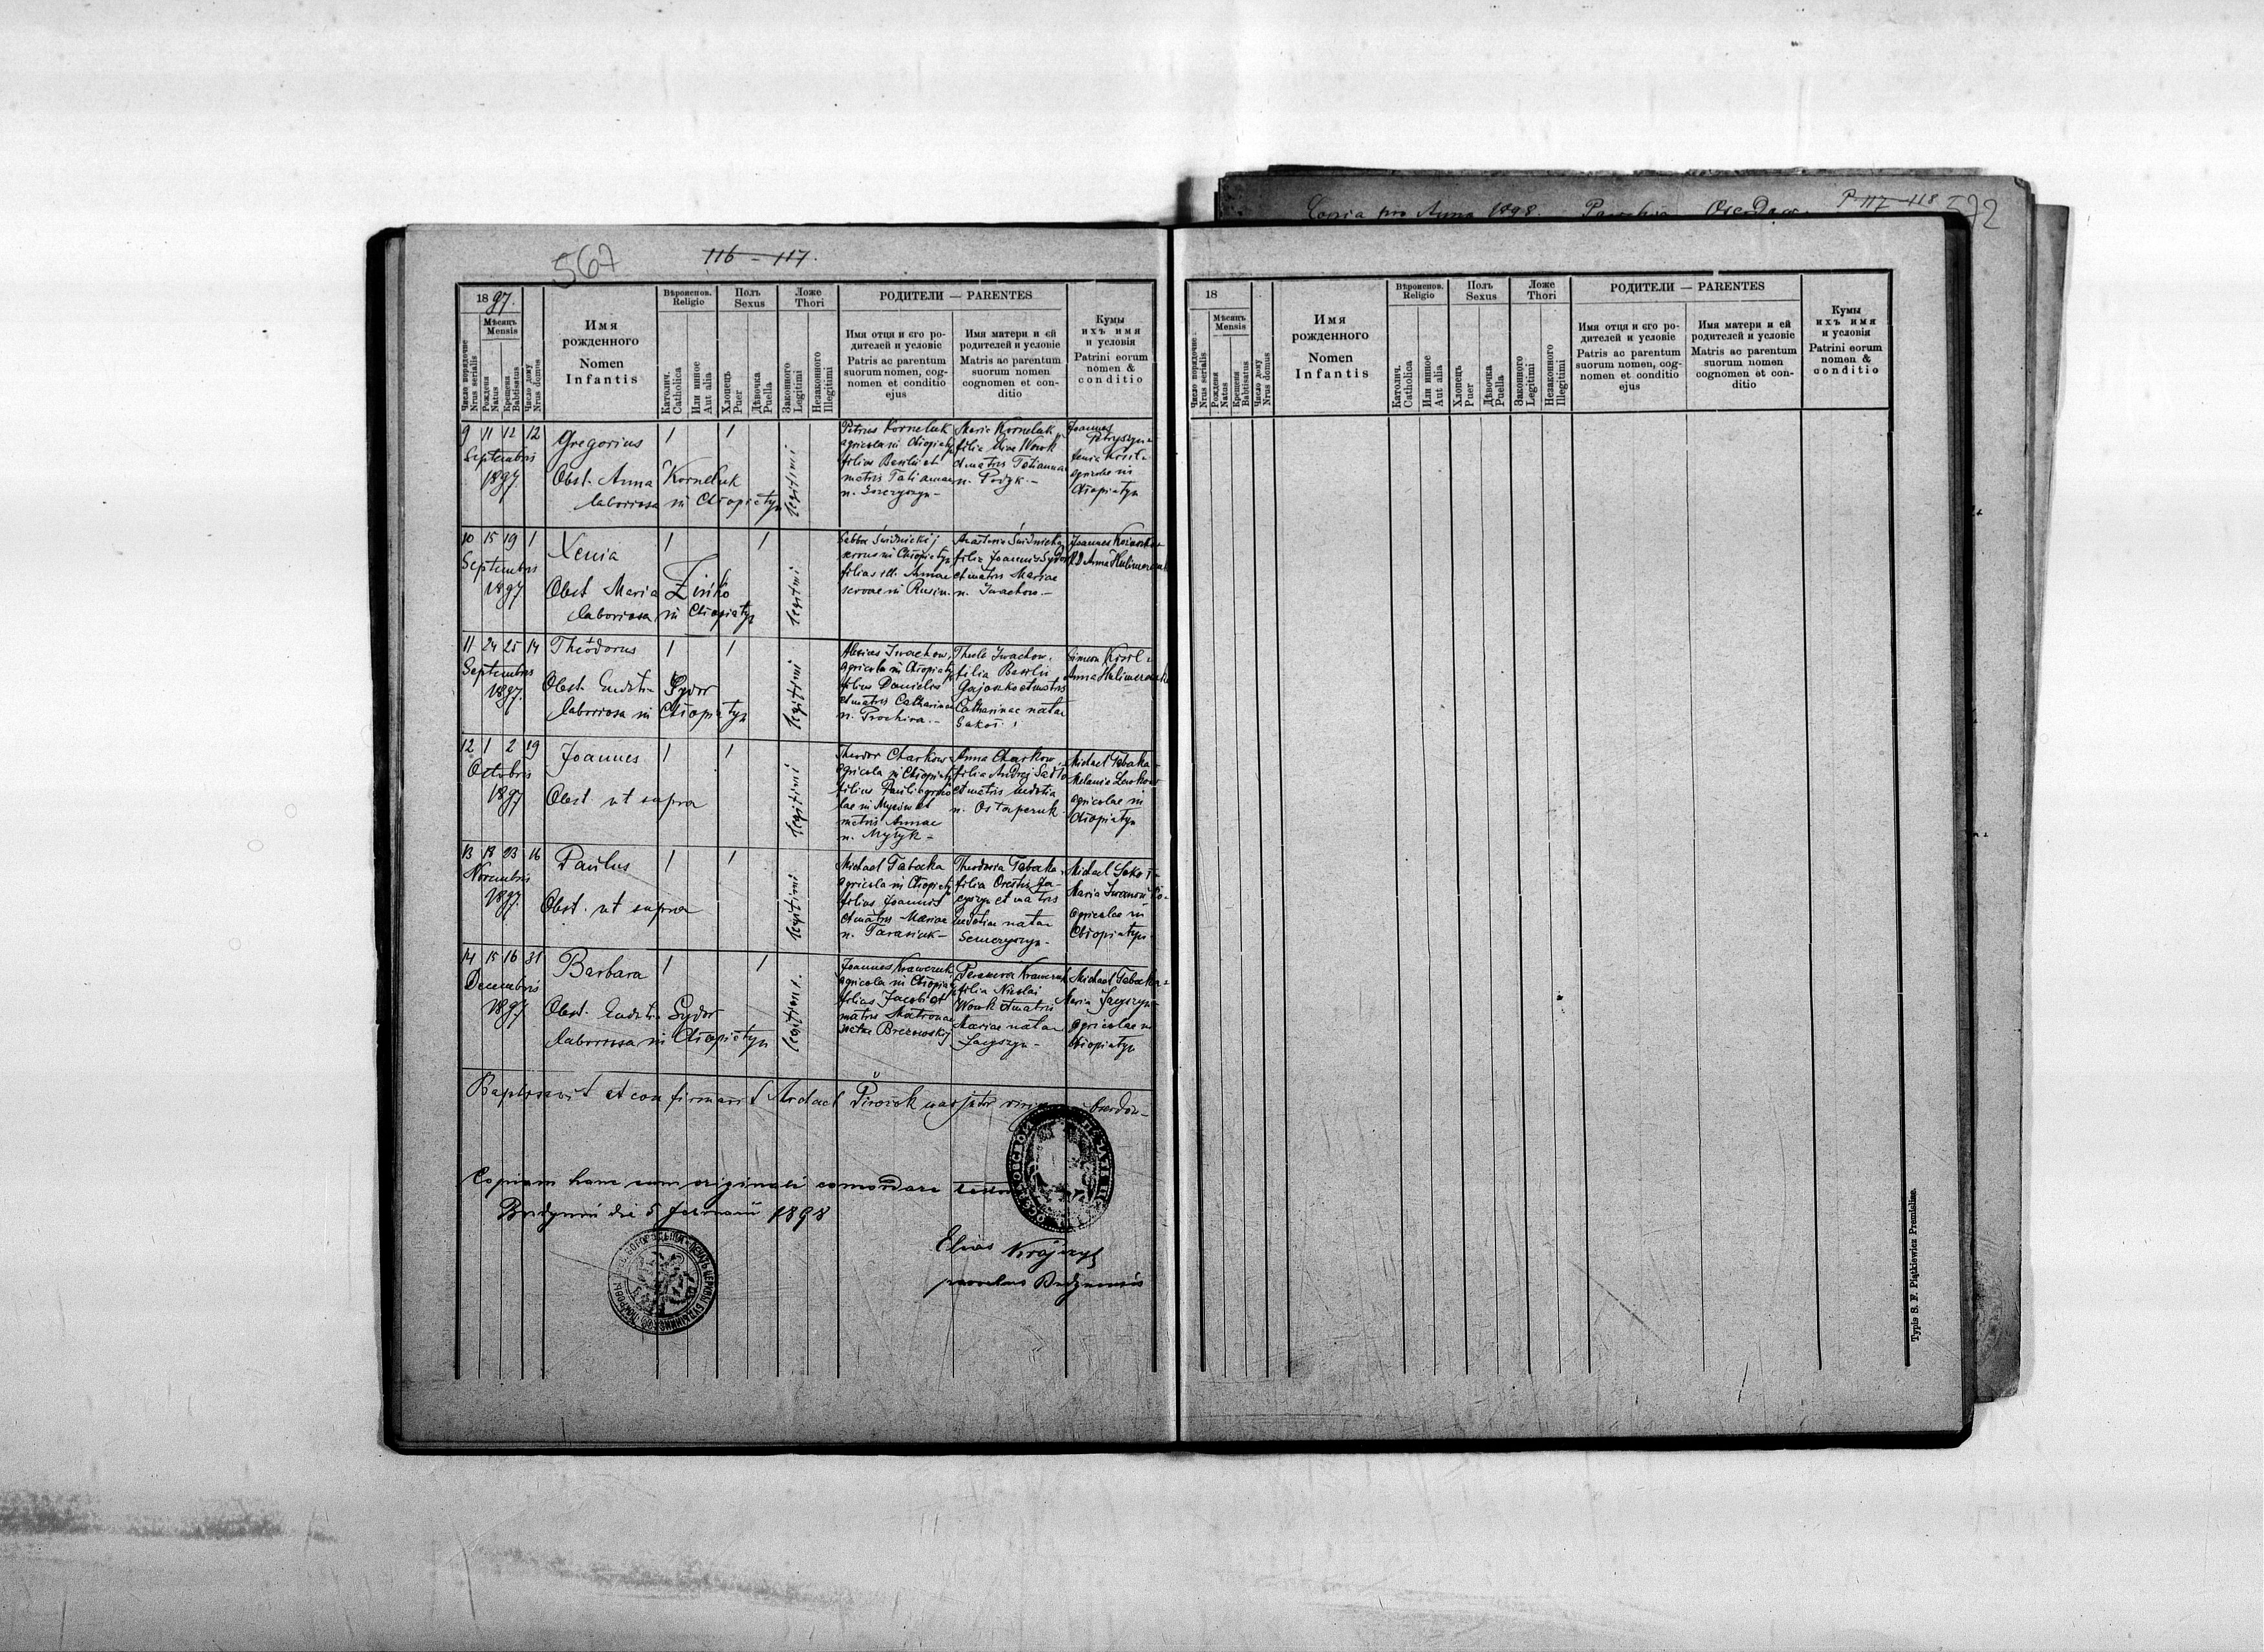 Copia pro Anno 1898. Parochia
P. 117-118
572
567
116 - 117.
1897.
Число порядочне
Nrus serialis
Мѣсяцъ
Mensis
Рождена
Natus
Крещена
Babtisatus
Число дому
Nrus domus
Имя
рожденного
Nomen
Infantis
Вѣроиспов.
Religio
Католич.
Catholica
Или инное
Aut alia
Полъ
Sexus
Хлопець
Puer
Дѣвочка
Puella
Ложе
Thori
Законного
Legitimi
Незаконного
Illegitimi
РОДИТЕЛИ — PARENTES
Имя отця и єго ро-
дителей и условіє
Patris ac parentum
suorum nomen, cog-
nomen et conditio
ejus
Имя матери и ей
родителей и условіє
Matris ac parentum
suorum nomen
cognomen et con-
ditio
Кумы
ихъ имя
и условія
Patrini eorum
nomen &
conditio
9 11 12 12
Septembris
1897
Gregorius
Obst. Anna Korneluk
laboriosa in Chłopiatyn
1 1
legitimi
Petrus Korneluk
agricola in Chłopiatyn
filius Basilii et
matris Tatianae
Maria Korneluk
filia Wowk
et matris Tatianna
n. Podyk.-
Joannes
Petryszyn
agricolae in
Chłopiatyn
10 15 19 1
Septembris
1897
Xenia
Obst Maria Zińko
laboriosa in Chłopiatyn
1 1
legitimi
Sabba Świdnickij
servus in Chłopiatyn
filius ill. Annae
servae in Rusin.
Anastasia Świdnicka
filia Joannis Sydor
et matris Mariae
n. Iwachow.-
Joannes
Anna
11 24 25 14
Septembris
1897.
Theodorus
Obst. Eudokia Sydor
laboriosa in Chłopiatyn
1 1
legitimi
Alexius Iwachow,
agricola in Chłopiatyn
filius Danielis
et matris Catharinae
n. Prochira.-
Thecla Iwachow,
filia Basilii
Gajoszko et matris
Catharinae natae
Sakos.
Simeon Kosil
Anna
12 1 2 19
Octobris
1897
Joannes
Obst. ut supra
1 1
legitimi
Theodor Charkow
agricola in Chłopiatyn
filius Pauli agrico
lae in Myców et
matris Annae
n. Myzyk-
Anna Charkow,
filia Andrej Sadło
et matris Eudokia
n. Ostapczuk
Michael Tabaka
Melania Lewkow
agricolae in
Chłopiatyn
13 18 23 16
Novembris
1897
Paulus
Obst. ut supra
1 1
legitimi
Michael Tabaka
agricola in Chłopiatyn
filius Joannis
et matris Mariae
n. Tarasiuk-
Theodosia Tabaka,
filia Orestis Ja-
cyszyn et matris
Eudokiae natae
Semczyszyn-
Michael
Maria
agricolae in
Chłopiatyn
14 15 16 31
Decembris
1897
Barbara
Obst. Eudokia Sydor
laboriosa in Chłopiatyn
1 1
legitimi.
Joannes Krawczuk
agricola in Chłopiatyn
filius Jacobi et
matris Matronae
natae Brezowskij
Parascewa Krawczuk
filia Nicolai
Wowk et matris
Mariae natae
Jacyszyn-
Michael Tabaka
Maria Jacyszyn
agricolae in
Chłopiatyn
Baptisavit et confirmavit Michael
Copiam hanc cum originali concordare testor
Budynin die 5 Februarii 1898
Elias
parochus Budynensis
18
Число порядочне
Nrus serialis
Мѣсяцъ
Mensis
Рождена
Natus
Крещена
Babtisatus
Число дому
Nrus domus
Имя
рожденного
Nomen
Infantis
Вѣроиспов.
Religio
Католич.
Catholica
Или инное
Aut alia
Полъ
Sexus
Хлопець
Puer
Дѣвочка
Puella
Ложе
Thori
Законного
Legitimi
Незаконного
Illegitimi
РОДИТЕЛИ — PARENTES
Имя отця и єго ро-
дителей и условіє
Patris ac parentum
suorum nomen, cog-
nomen et conditio
ejus
Имя матери и ей
родителей и условіє
Matris ac parentum
suorum nomen
cognomen et con-
ditio
Кумы
ихъ имя
и условія
Patrini eorum
nomen &
conditio
Typis S. F. Piątkiewicz Premisliae.